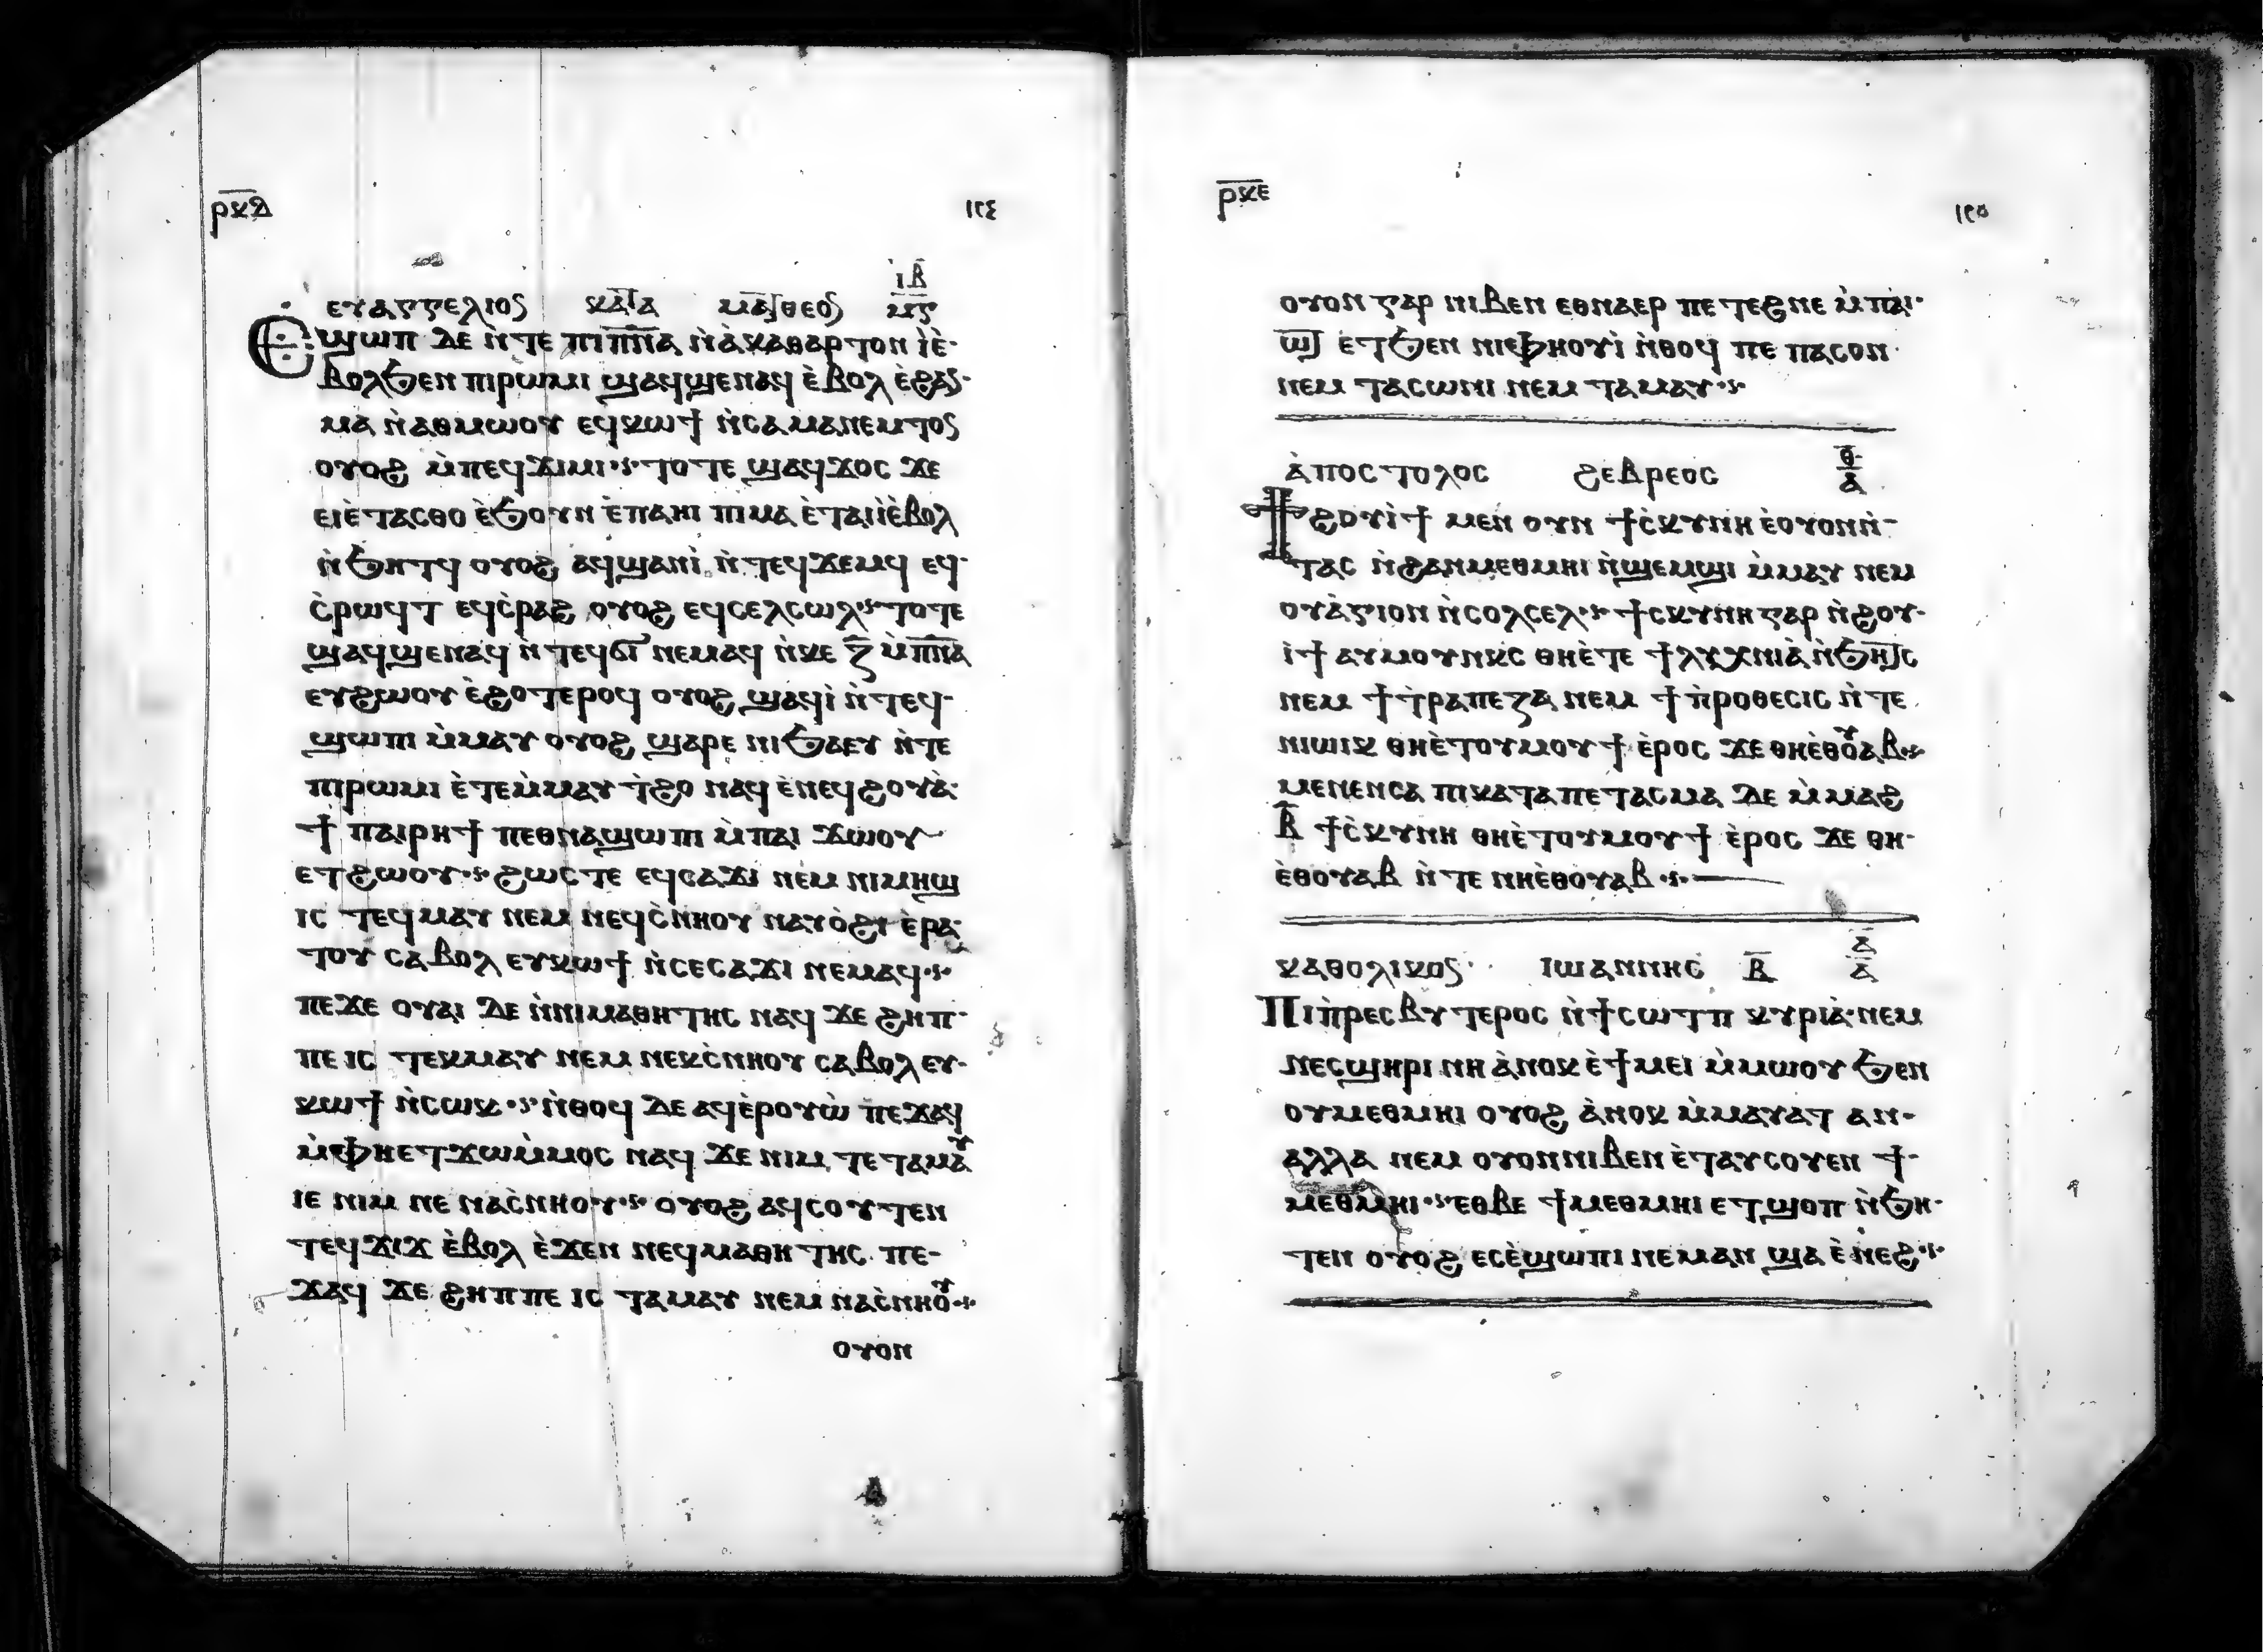 ⲣⲕⲇ ١٢٤
ⲓⲃ
ⲉⲩⲁⲅⲅⲉⲗⲓⲟⲥ ⲕⲁⲧⲁ ⲙⲁⲧⲑⲉⲟⲥ ⲙⲋ
Ⲉϣⲱⲡ ⲇⲉ ⲛ̀ⲧⲉ ⲡⲓⲡ̅ⲛ̅ⲁ ⲛ̀ⲁ̀ⲕⲁⲑⲁⲣⲧⲟⲛ ⲓ̀ⲉ̀-
ⲃⲟⲗϧⲉⲛ ⲡⲓⲣⲱⲙⲓ ϣⲁϥϣⲉⲛⲁϥ ⲉ̀ⲃⲟⲗ ⲉ̀ϩⲁⲥ-
ⲙⲁ ⲛ̀ⲁⲑⲙⲱⲟⲩ ⲉϥⲕⲱϯ ⲛ̀ⲥⲁ ⲙⲁⲛⲉⲙⲧⲟⲥ
ⲟⲩⲟϩ ⲙ̀ⲡⲉϥϫⲓⲙⲓ ⲧⲟⲧⲉ ϣⲁϥϫⲟⲥ ϫⲉ
ⲉⲓⲉ̀ⲧⲁⲥⲑⲟ ⲉ̀ϧⲟⲩⲛ ⲉ̀ⲡⲁⲏⲓ ⲡⲓⲙⲁ ⲉ̀ⲧⲁⲓⲓ̀ⲉ̀ⲃⲟⲗ
ⲛ̀ϧⲏⲧϥ ⲟⲩⲟϩ ⲁϥϣⲁⲛⲓ̀ ⲛ̀ⲧⲉϥϫⲉⲙϥ ⲉϥ-
ⲥ̀ⲣⲱϥⲧ ⲉϥⲥ̀ⲣⲁϩ ⲟⲩⲟϩ ⲉϥⲥⲉⲗⲥⲱⲗ ⲧⲟⲧⲉ
ϣⲁϥϣⲉⲛⲁϥ ⲛ̀ⲧⲉϥϭⲓ ⲛⲉⲙⲁϥ ⲛ̀ⲕⲉ ⲍ̅ ⲙ̀ⲡ̅ⲛ̅ⲁ
ⲉⲩϩⲱⲟⲩ ⲉ̀ϩⲟⲧⲉⲣⲟϥ ⲟⲩⲟϩ ϣⲁϥⲓ̀ ⲛ̀ⲧⲉϥ-
ϣⲱⲡⲓ ⲙ̀ⲙⲁⲩ ⲟⲩⲟϩ ϣⲁⲣⲉ ⲛⲓϧⲁⲉⲩ ⲛ̀ⲧⲉ
ⲡⲓⲣⲱⲙⲓ ⲉ̀ⲧⲉⲙ̀ⲙⲁⲩ ⲧ̀ϩⲟ ⲛⲁϥ ⲉ̀ⲛⲉϥϩⲟⲩⲁ̀ϯ
ϯ ⲡⲁⲓⲣⲏϯ ⲡⲉⲑⲛⲁϣⲱⲡⲓ ⲙ̀ⲡⲁⲓ ϫⲱⲟⲩ
ⲉⲧϩⲱⲟⲩ ϩⲱⲥⲧⲉ ⲉϥⲥⲁϫⲓ ⲛⲉⲙ ⲛⲓⲙⲏϣ
ⲓⲥ ⲧⲉϥⲙⲁⲩ ⲛⲉⲙ ⲛⲉϥⲥ̀ⲛⲏⲟⲩ ⲛⲁⲩⲟ̀ϩⲓ ⲉ̀ⲣⲁ-
ⲧⲟⲩ ⲥⲁⲃⲟⲗ ⲉⲩⲕⲱϯ ⲛ̀ⲥⲉⲥⲁϫⲓ ⲛⲉⲙⲁϥ
ⲡⲉϫⲉ ⲟⲩⲁⲓ ⲇⲉ ⲛ̀ⲛⲓⲙⲁⲑⲏⲧⲏⲥ ⲛⲁϥ ϫⲉ ϩⲏⲡ-
ⲡⲉ ⲓⲥ ⲧⲉⲕⲙⲁⲩ ⲛⲉⲙ ⲛⲉⲕⲥ̀ⲛⲏⲟⲩ ⲥⲁⲃⲟⲗ ⲉⲩ-
ⲕⲱϯ ⲛ̀ⲥⲱⲕ ⲛ̀ⲑⲟϥ ⲇⲉ ⲁϥⲉ̀ⲣⲟⲩⲱ̀ ⲡⲉϫⲁϥ
ⲙ̀ⲫⲏⲉⲧϫⲱⲙ̀ⲙⲟⲥ ⲛⲁϥ ϫⲉ ⲛⲓⲙ ⲧⲉ ⲧⲁⲙⲁⲩ
ⲓⲉ ⲛⲓⲙ ⲛⲉ ⲛⲁⲥ̀ⲛⲏⲟⲩ ⲟⲩⲟϩ ⲁϥⲥⲟⲩⲧⲉⲛ
ⲧⲉϥϫⲓϫ ⲉ̀ⲃⲟⲗ ⲉ̀ϫⲉⲛ ⲛⲉϥⲙⲁⲑⲏⲧⲏⲥ ⲡⲉ-
ϫⲁϥ ϫⲉ ϩⲏⲡⲡⲉ ⲓⲥ ⲧⲁⲙⲁⲩ ⲛⲉⲙ ⲛⲁⲥ̀ⲛⲏⲟⲩ
ⲟⲩⲟⲛ
ⲣⲕⲉ ١٢٥
ⲟⲩⲟⲛ ⲅⲁⲣ ⲛⲓⲃⲉⲛ ⲉⲑⲛⲁⲉⲣ ⲡⲉⲧⲉϩⲛⲉ ⲙ̀ⲡⲁⲓ-
ⲱⲧ ⲉⲧϧⲉⲛ ⲛⲓⲫⲏⲟⲩⲓ̀ ⲛ̀ⲑⲟϥ ⲡⲉ ⲡⲁⲥⲟⲛ
ⲛⲉⲙ ⲧⲁⲥⲱⲛⲓ ⲛⲉⲙ ⲧⲁⲙⲁⲩ
ⲁ̀ⲡⲟⲥⲧⲟⲗⲟⲥ ϩⲉⲃⲣⲉⲟⲥ ⲑ ⲁ
Ϯϩⲟⲩⲓ̀ϯ ⲙⲉⲛ ⲟⲩⲛ ϯⲥ̀ⲕⲩⲛⲏ ⲉ̀ⲟⲩⲟⲛⲛ̀-
ⲧⲁⲥ ⲛ̀ϩⲁⲛⲙⲉⲑⲙⲏⲓ ⲛ̀ϣⲉⲙϣⲓ ⲙ̀ⲙⲁⲩ ⲛⲉⲙ
ⲟⲩⲁ̀ⲅⲓⲟⲛ ⲛ̀ⲥⲟⲗⲥⲉⲗ ϯⲥⲕⲩⲛⲏ ⲅⲁⲣ ⲛ̀ϩⲟⲩ-
ⲓ̀ϯ ⲁⲩⲙⲟⲩⲛⲕⲥ ⲑⲏⲉ̀ⲧⲉ ϯⲗⲩⲭⲛⲓⲁ̀ ⲛ̀ϧⲏⲧⲥ
ⲛⲉⲙ ϯⲧ̀ⲣⲁⲡⲉⲍⲁ ⲛⲉⲙ ϯⲡ̀ⲣⲟⲑⲉⲥⲓⲥ ⲛ̀ⲧⲉ
ⲛⲓⲱⲓⲕ ⲑⲏⲉ̀ⲧⲟⲩⲙⲟⲩϯ ⲉ̀ⲣⲟⲥ ϫⲉ ⲑⲏⲉ̀ⲑⲟⲩⲁⲃ
ⲙⲉⲛⲉⲛⲥⲁ ⲡⲓⲕⲁⲧⲁⲡⲉⲧⲁⲥⲙⲁ ⲇⲉ ⲙ̀ⲙⲁϩ
ⲃ̅ ϯⲥ̀ⲕⲩⲛⲏ ⲑⲏⲉ̀ⲧⲟⲩⲙⲟⲩϯ ⲉ̀ⲣⲟⲥ ϫⲉ ⲑⲏ-
ⲉ̀ⲑⲟⲩⲁⲃ ⲛ̀ⲧⲉ ⲛⲏⲉ̀ⲑⲟⲩⲁⲃ
ⲕⲁⲑⲟⲗⲓⲕⲟⲥ ⲓⲱⲁⲛⲛⲏⲥ ⲃ̅ ⲁ̅ ⲁ̅
Ⲡⲓⲡ̀ⲣⲉⲥⲃⲩⲧⲉⲣⲟⲥ ⲛ̀ϯⲥⲱⲧⲡ ⲕⲩⲣⲓⲁ̀ ⲛⲉⲙ
ⲛⲉⲥϣⲏⲣⲓ ⲛⲏ ⲁ̀ⲛⲟⲕ ⲉ̀ϯⲙⲉⲓ ⲙ̀ⲙⲱⲟⲩ ϧⲉⲛ
ⲟⲩⲙⲉⲑⲙⲏⲓ ⲟⲩⲟϩ ⲁ̀ⲛⲟⲕ ⲙ̀ⲙⲁⲩⲁⲧ ⲁⲛ
ⲁⲗⲗⲁ ⲛⲉⲙ ⲟⲩⲟⲛⲛⲓⲃⲉⲛ ⲉ̀ⲧⲁⲩⲥⲟⲩⲉⲛ ϯ-
ⲙⲉⲑⲙⲏⲓ ⲉⲑⲃⲉ ϯⲙⲉⲑⲙⲏⲓ ⲉⲧϣⲟⲡ ⲛ̀ϧⲏ-
ⲧⲉⲛ ⲟⲩⲟϩ ⲉⲥⲉ̀ϣⲱⲡⲓ ⲛⲉⲙⲁⲛ ϣⲁ ⲉ̀ⲛⲉϩ